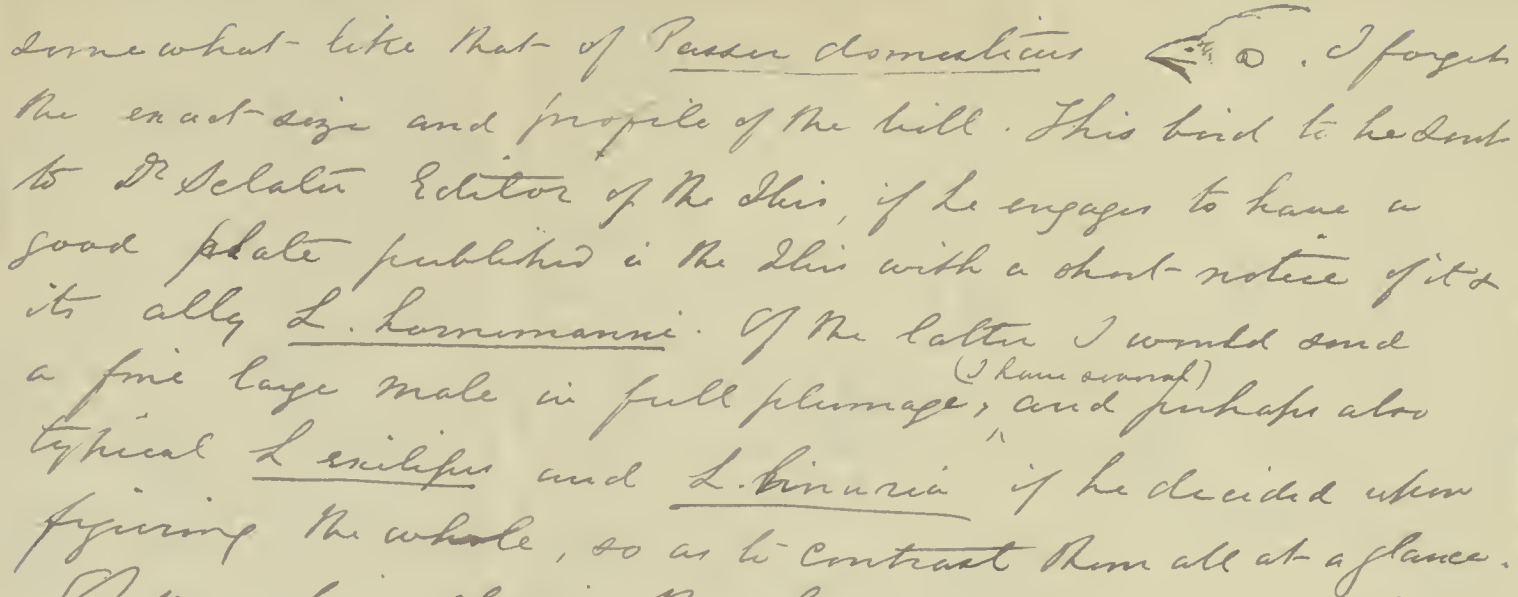 somewhat like that of Passer domesticus . I forget
the exact size and profile of the bill. This bird to be sent
to Dr Sclater Editor of the Ibis, if he engages to have a
good plate published in the Ibis with a short notice of it &
its ally L. hornemanni. Of the latter I would send
(I have several)
a fine large male in full plumage, and perhaps also
typical L exilipes and L. linaria if he decided upon
figuring the whole, so as to contrast them all at a glance.